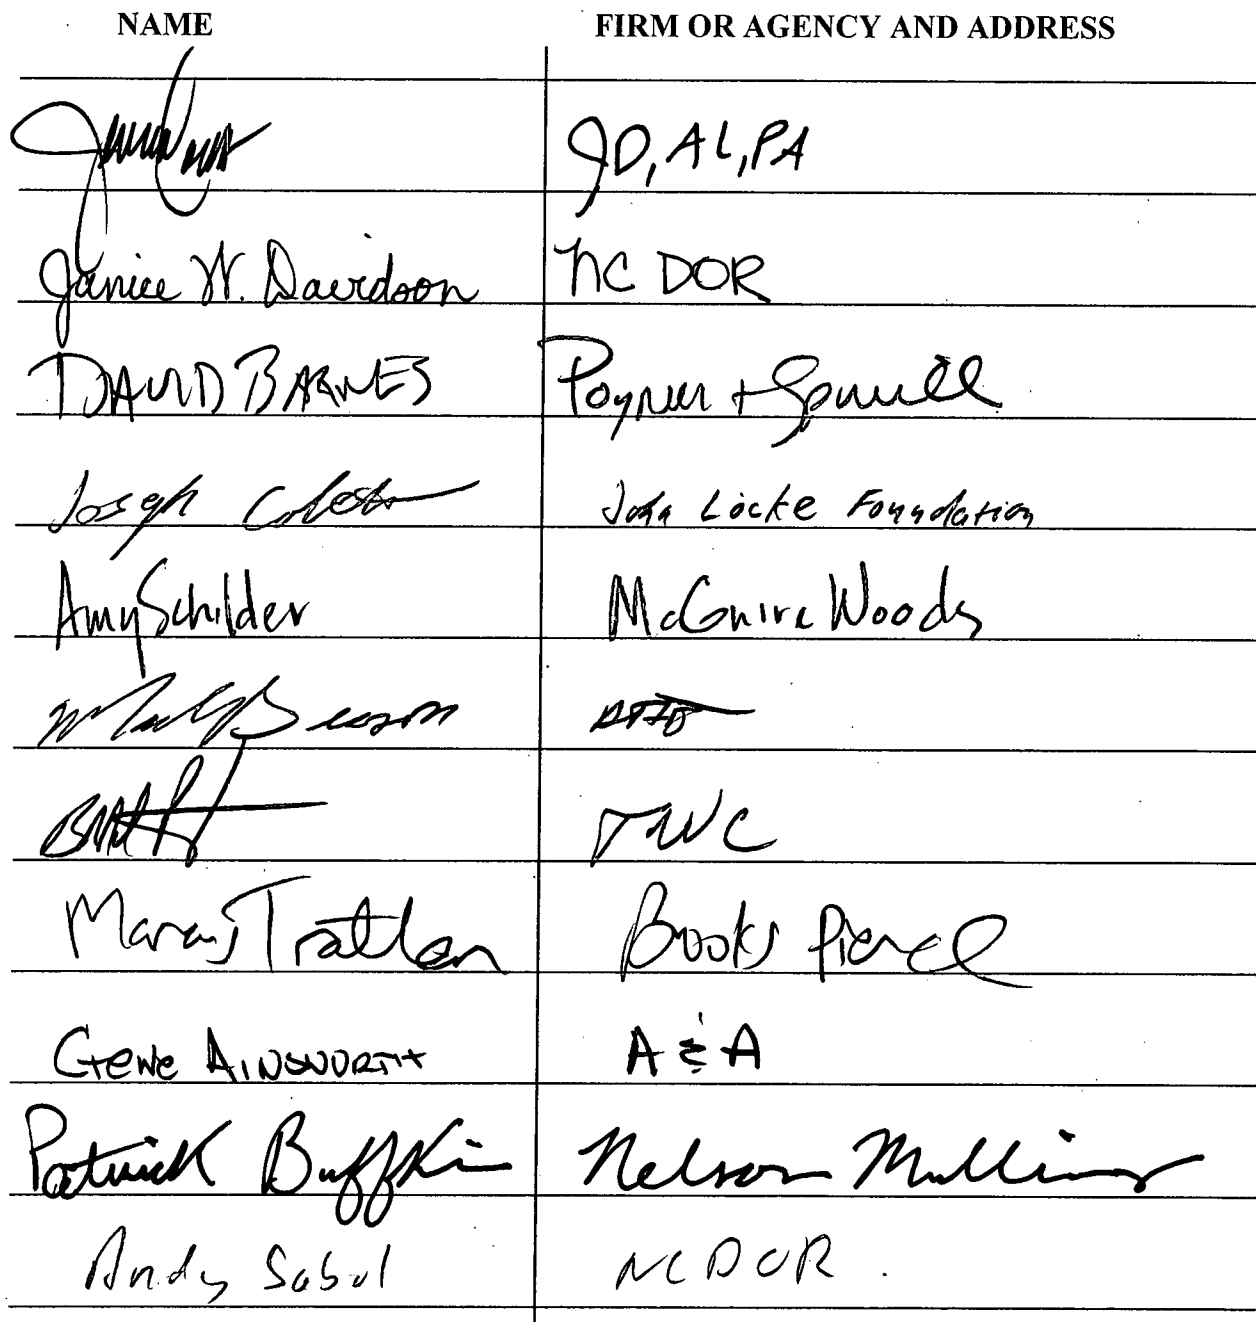 NAME FIRM OR AGENCY AND ADDRESS
JD, AL, PA
Janice W. Davidson NC DOR
DAVID BARNES Poyner + Spruill
Joseph Coletti John Locke Foundation
Amy Schilder McGuire Woods
Beason
TWC
Marcus Trathen Brooks Pierce
Gene AINSWORTH A & A
Patrick Buffkin Nelson Mullins
Andy Sabol NCDOR